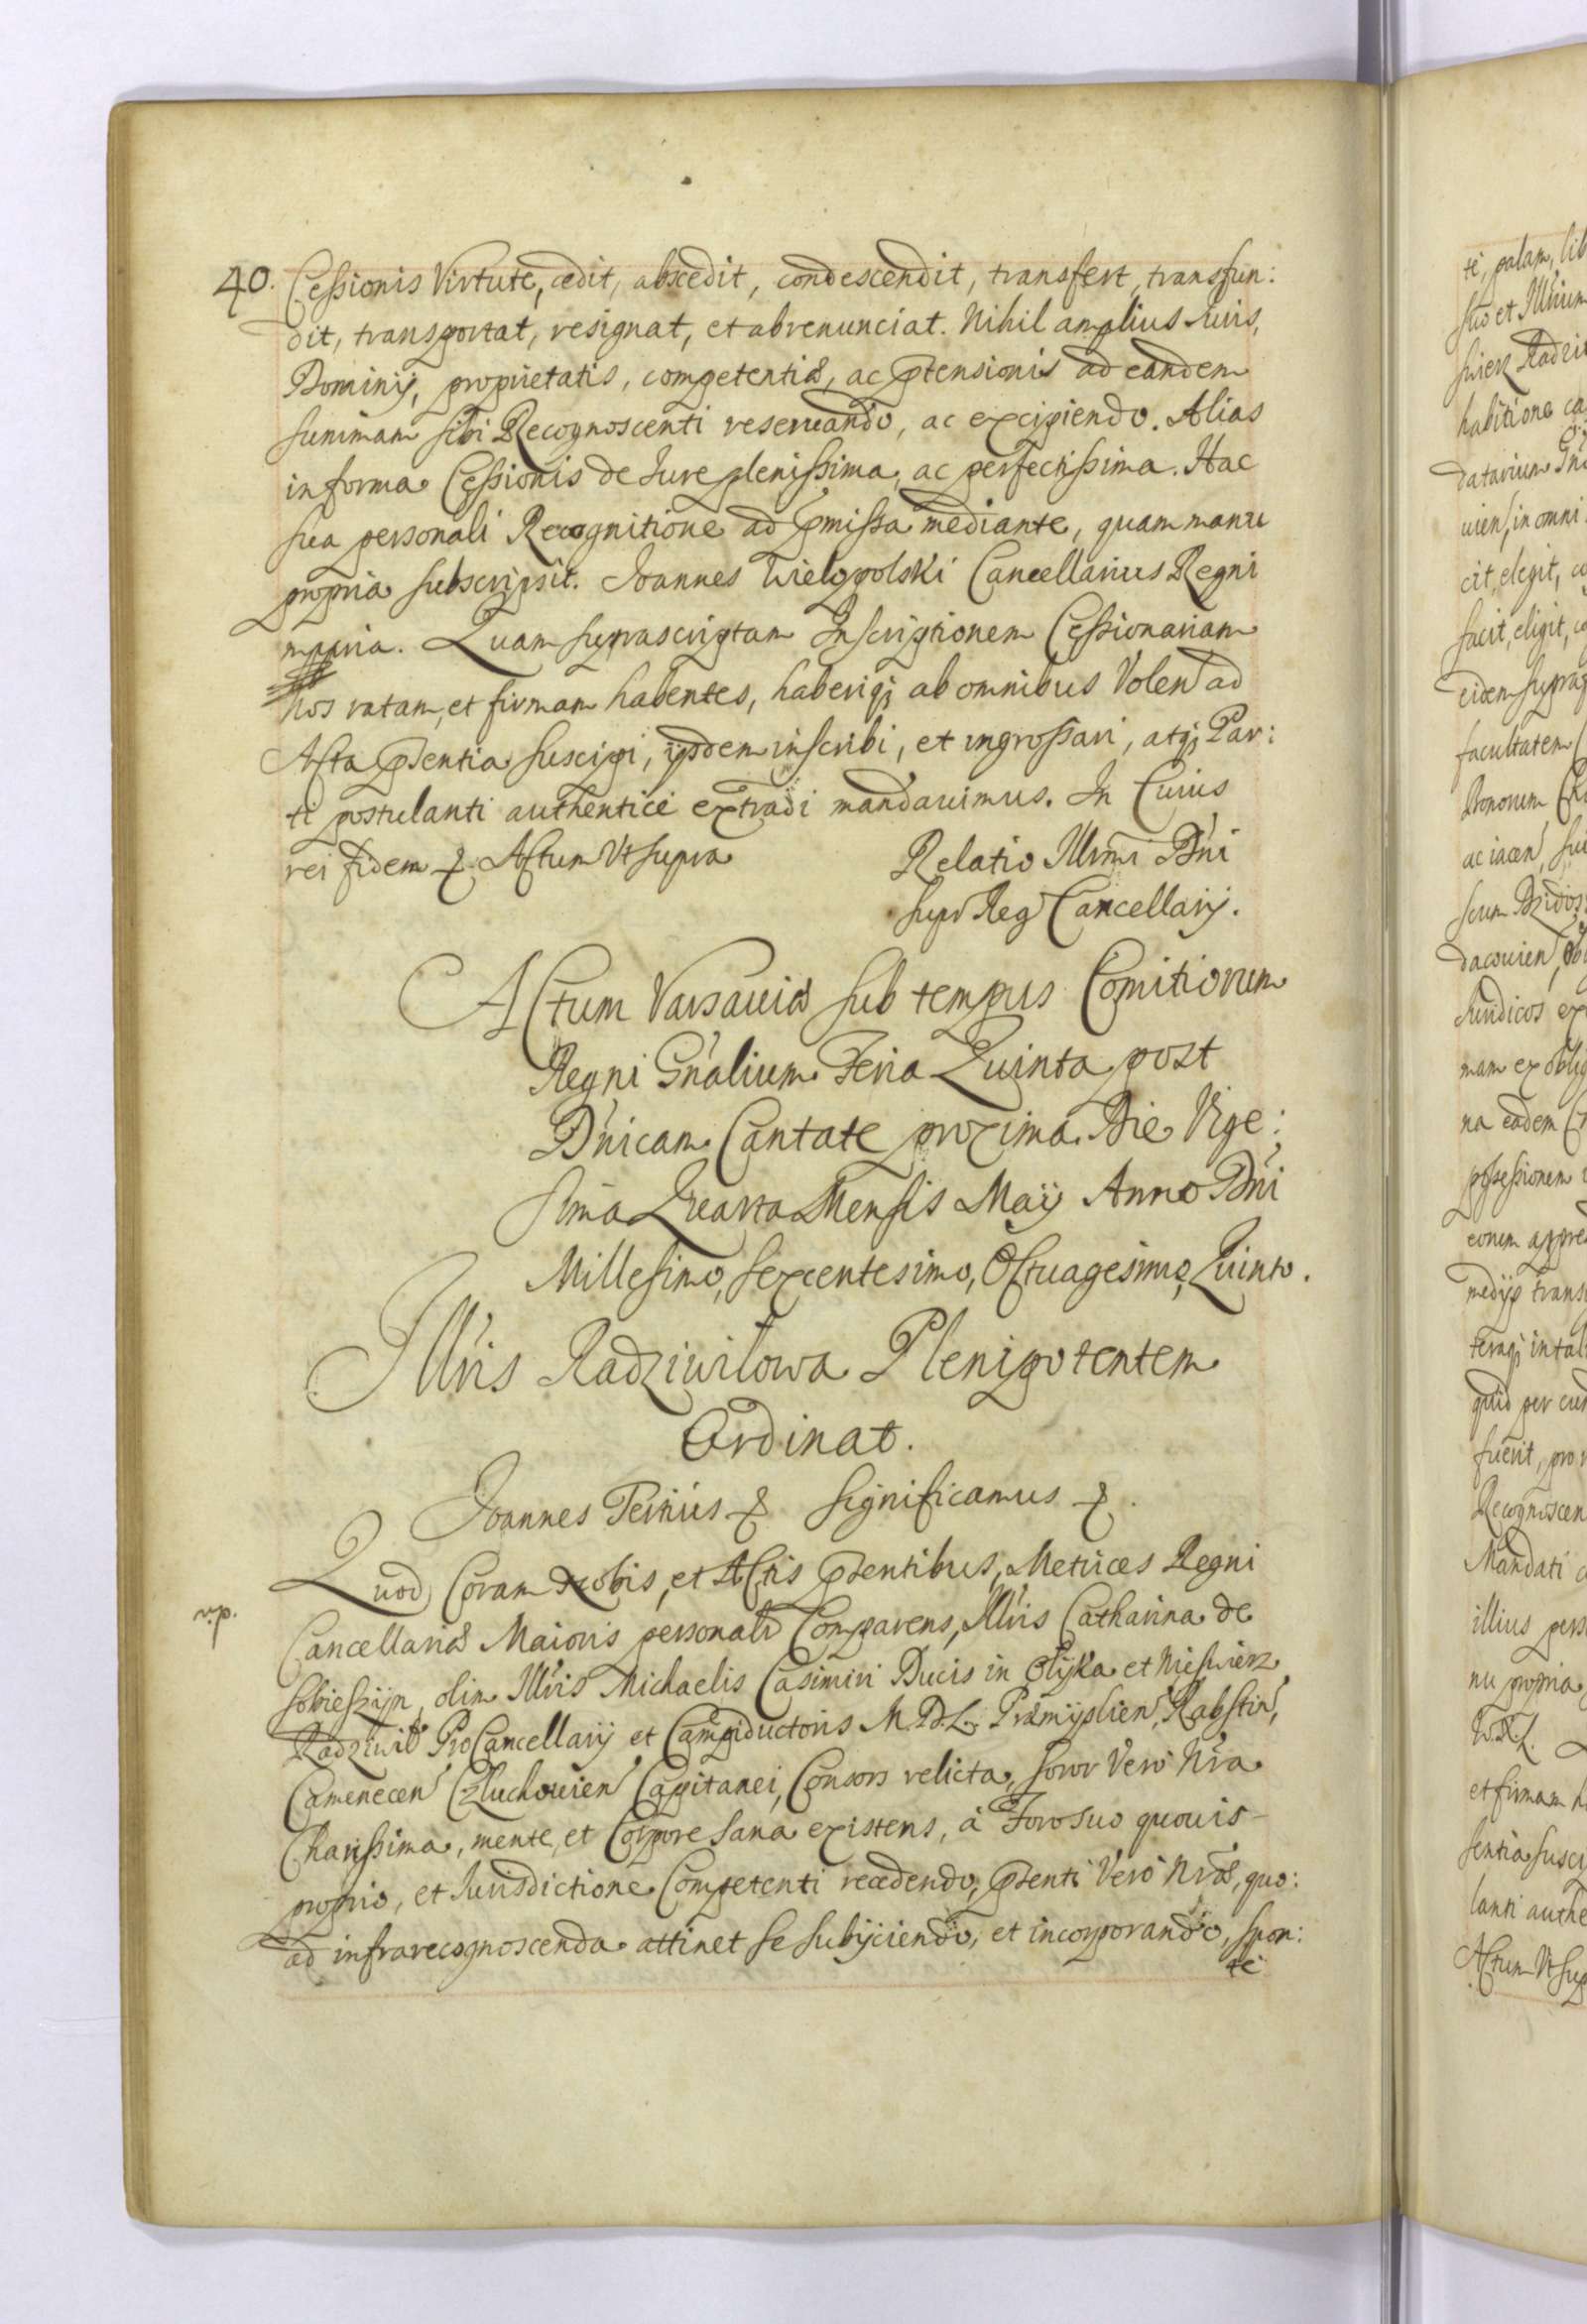 40. Cessionis Virtute, cedit, abscedit, condescendit, transfert, transfun:
dit, transportat, resignat, et abrenunciat. Nihil amplius Iuris,
Dominij, proprietatis, competentiæ, ac ptensionis ad eandem
summam sibi Recognoscenti reseruando, ac excipiendo. Alias
in forma Cessionis de Iure plenissima, ac perfectissima. Hac
sua personali Recognitione ad pmissa mediante, quam manu
propria subscripsit. Joannes Wielopolski Cancellarius Regni
mppria. Quam suprascriptam Inscriptionem Cessionariam
Nos ratam, et firmam habentes, haberiq; ab omnibus Volen ad
Acta psentia suscipi, ijsdem inscribi, et ingrossari, atq; Par:
ti postulanti authentice extradi mandauimus. In Cuius
rei fidem &. Actum Vt supra
Relatio Illmi Dni
Supr Reg Cancellarij.
Actum Varsauiæ sub tempus Comitiorum
Regni Gnalium Feria Quinta post
Dnicam Cantate proxima. Die Vige:
sima Quarta Mensis Maij Anno Dni
Millesimo, sexcentesimo, Octuagesimo, Quinto.
Illris Radziwiłowa Plenipotentem
Ordinat.
Joannes Tertius & significamus &.
Quod Coram Nobis, et Actis psentibus, Metrices Regni
Cancellariæ Maioris personalr Comparens, Illris Catharina de
n.p.
Sobieszijn, olim Illris Michaelis Casimiri Ducis in Olijka et Nieswierz
Radziwił ProCancellarij et Campiductoris M. D. L. Præmijslien, Rabstin,
Camenecen Człuchouien Capitanei, Consors relicta, soror Vero Nra
Charissima, mente, et Corpore sana existens, à Foro suo quouis-
proprio, et Iurisdictione Competenti recedendo, psenti Vero Nræ, quo:
ad infrarecognoscenda attinet se subijciendo, et incorporando, spon:
te
te, palam, lib
suo et Illrium
swierz Radzi
habitione ca
datarium
uien, in omni
cit, elegit, c
facit, eligit, c
eidem supra
facultatem
Bonorum
ac iacen, su
scum
dacouien,
Iuridicos ex
mam ex oblig
na eadem
possessionem
eorum appre
medijs trans
teraq; in tal
quid per eun
fuerit, pro
Recognoscen
Mandati
illius pers
nu propria
W. X. L.
et firmam h
sentia susci
lanti authe
Actum Vt sup